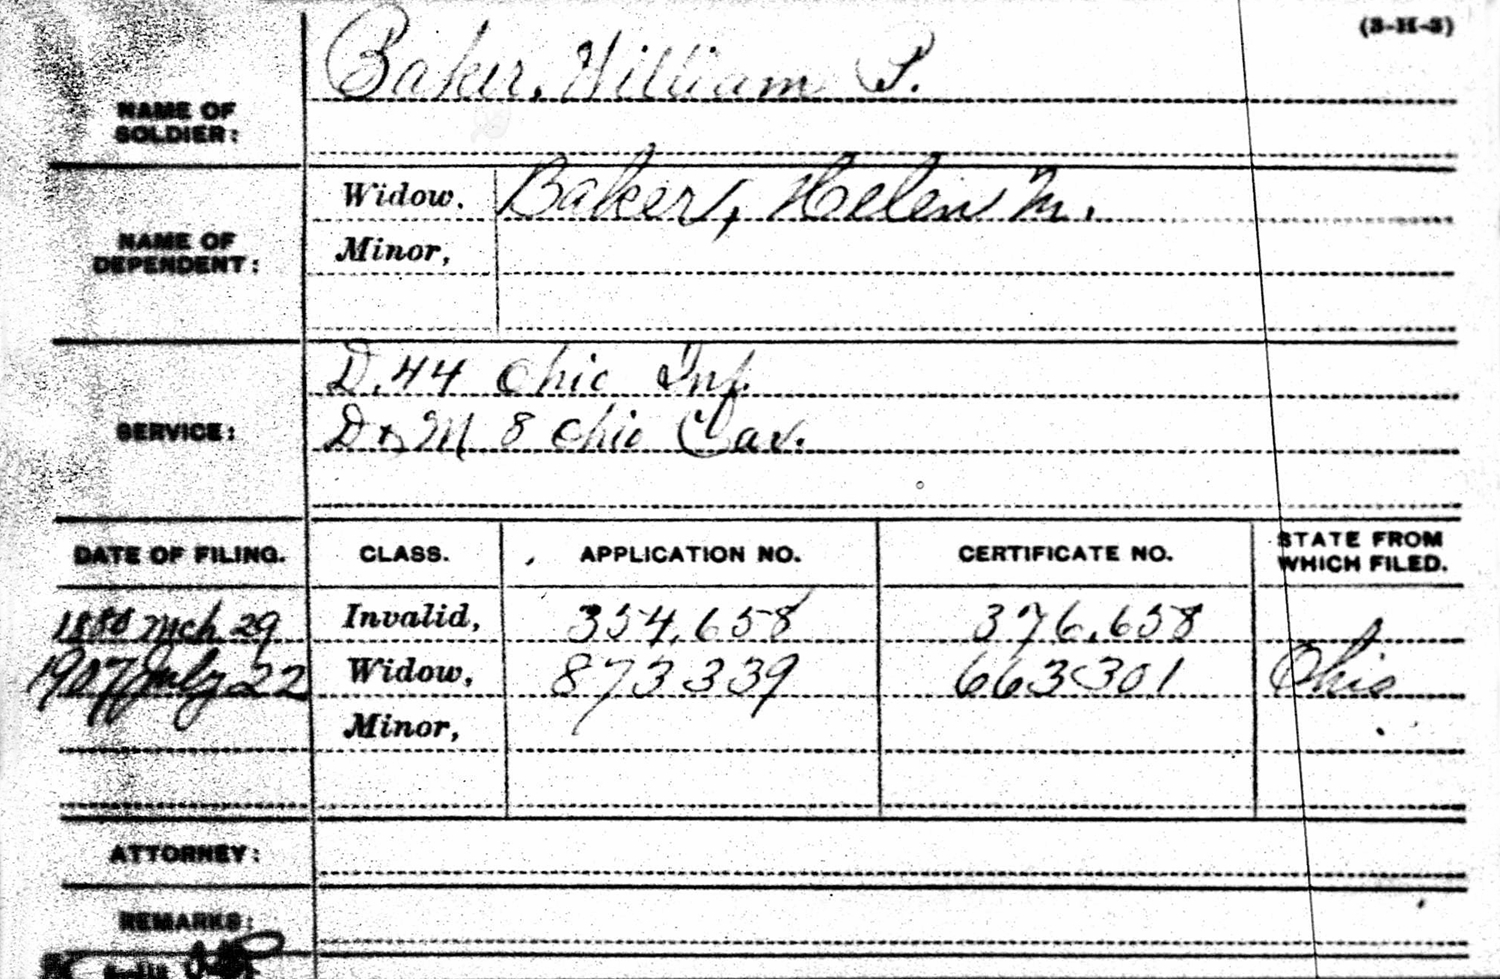 (3-H-3)
NAME OF SOLDIER: Baker, William P.
NAME OF DEPENDENT:
Widow, Baker, Helen M.
Minor,
SERVICE:
D. 44 Ohio Inf.
D & M 8 Ohio Cav.
DATE OF FILING. CLASS. APPLICATION NO. CERTIFICATE NO. STATE FROM WHICH FILED.
1880 Mch 29 Invalid, 354,658 376,658
1907 July 22 Widow, 873339 663301 Ohio
Minor,
ATTORNEY:
REMARKS: